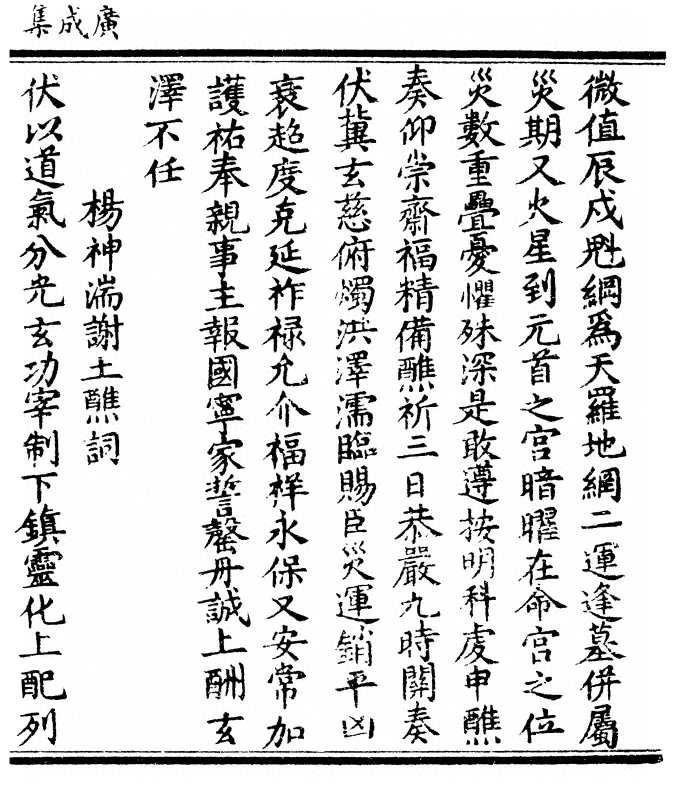 廣成集
微值辰戍魁綱爲天羅地網二運逢墓併屬
災期又火星到元首之宮暗曜在命宮之位
災數重疊憂懼殊深是敢遵按明科虔申醮
奏仰崇齋福精備醮祈三日恭嚴九時關奏
伏冀玄慈俯燭洪澤濡臨賜臣災運銷平凶
衰超度克延祚禄允介福祥永保乂安常加
護祐奉親事主報國寧家誓罄丹誠上酬玄
澤不任
楊神湍謝土醮詞
伏以道氣分光玄功宰制下鎮靈化上配列